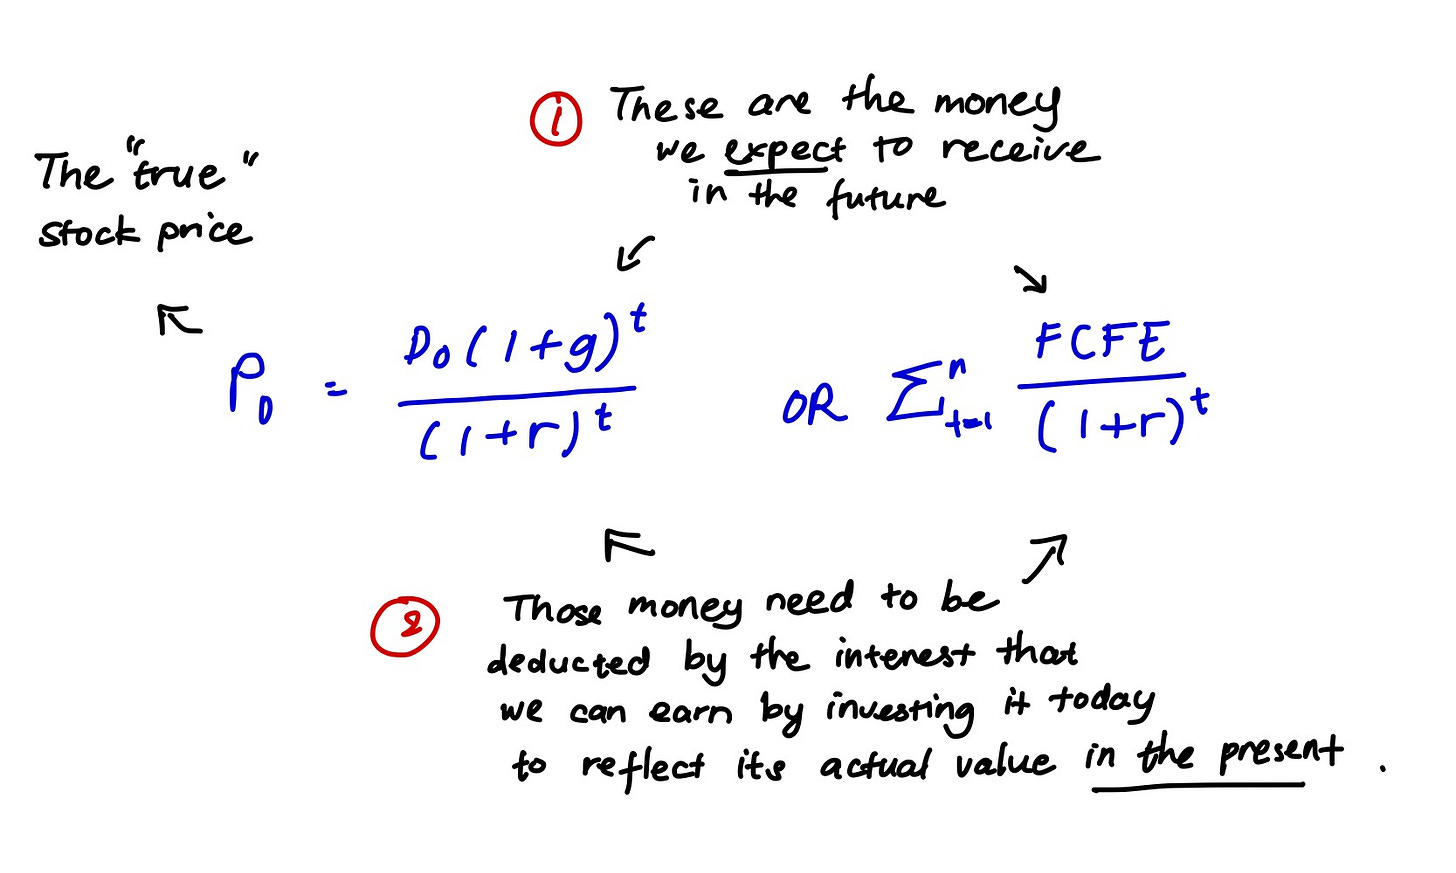 ① These are the money
we expect to receive
in the future
The "true"
stock price
P₀ = D₀(1+g)^t / (1+r)^t OR Σ^n_{t=1} FCFE / (1+r)^t
② Those money need to be
deducted by the interest that
we can earn by investing it today
to reflect its actual value in the present.